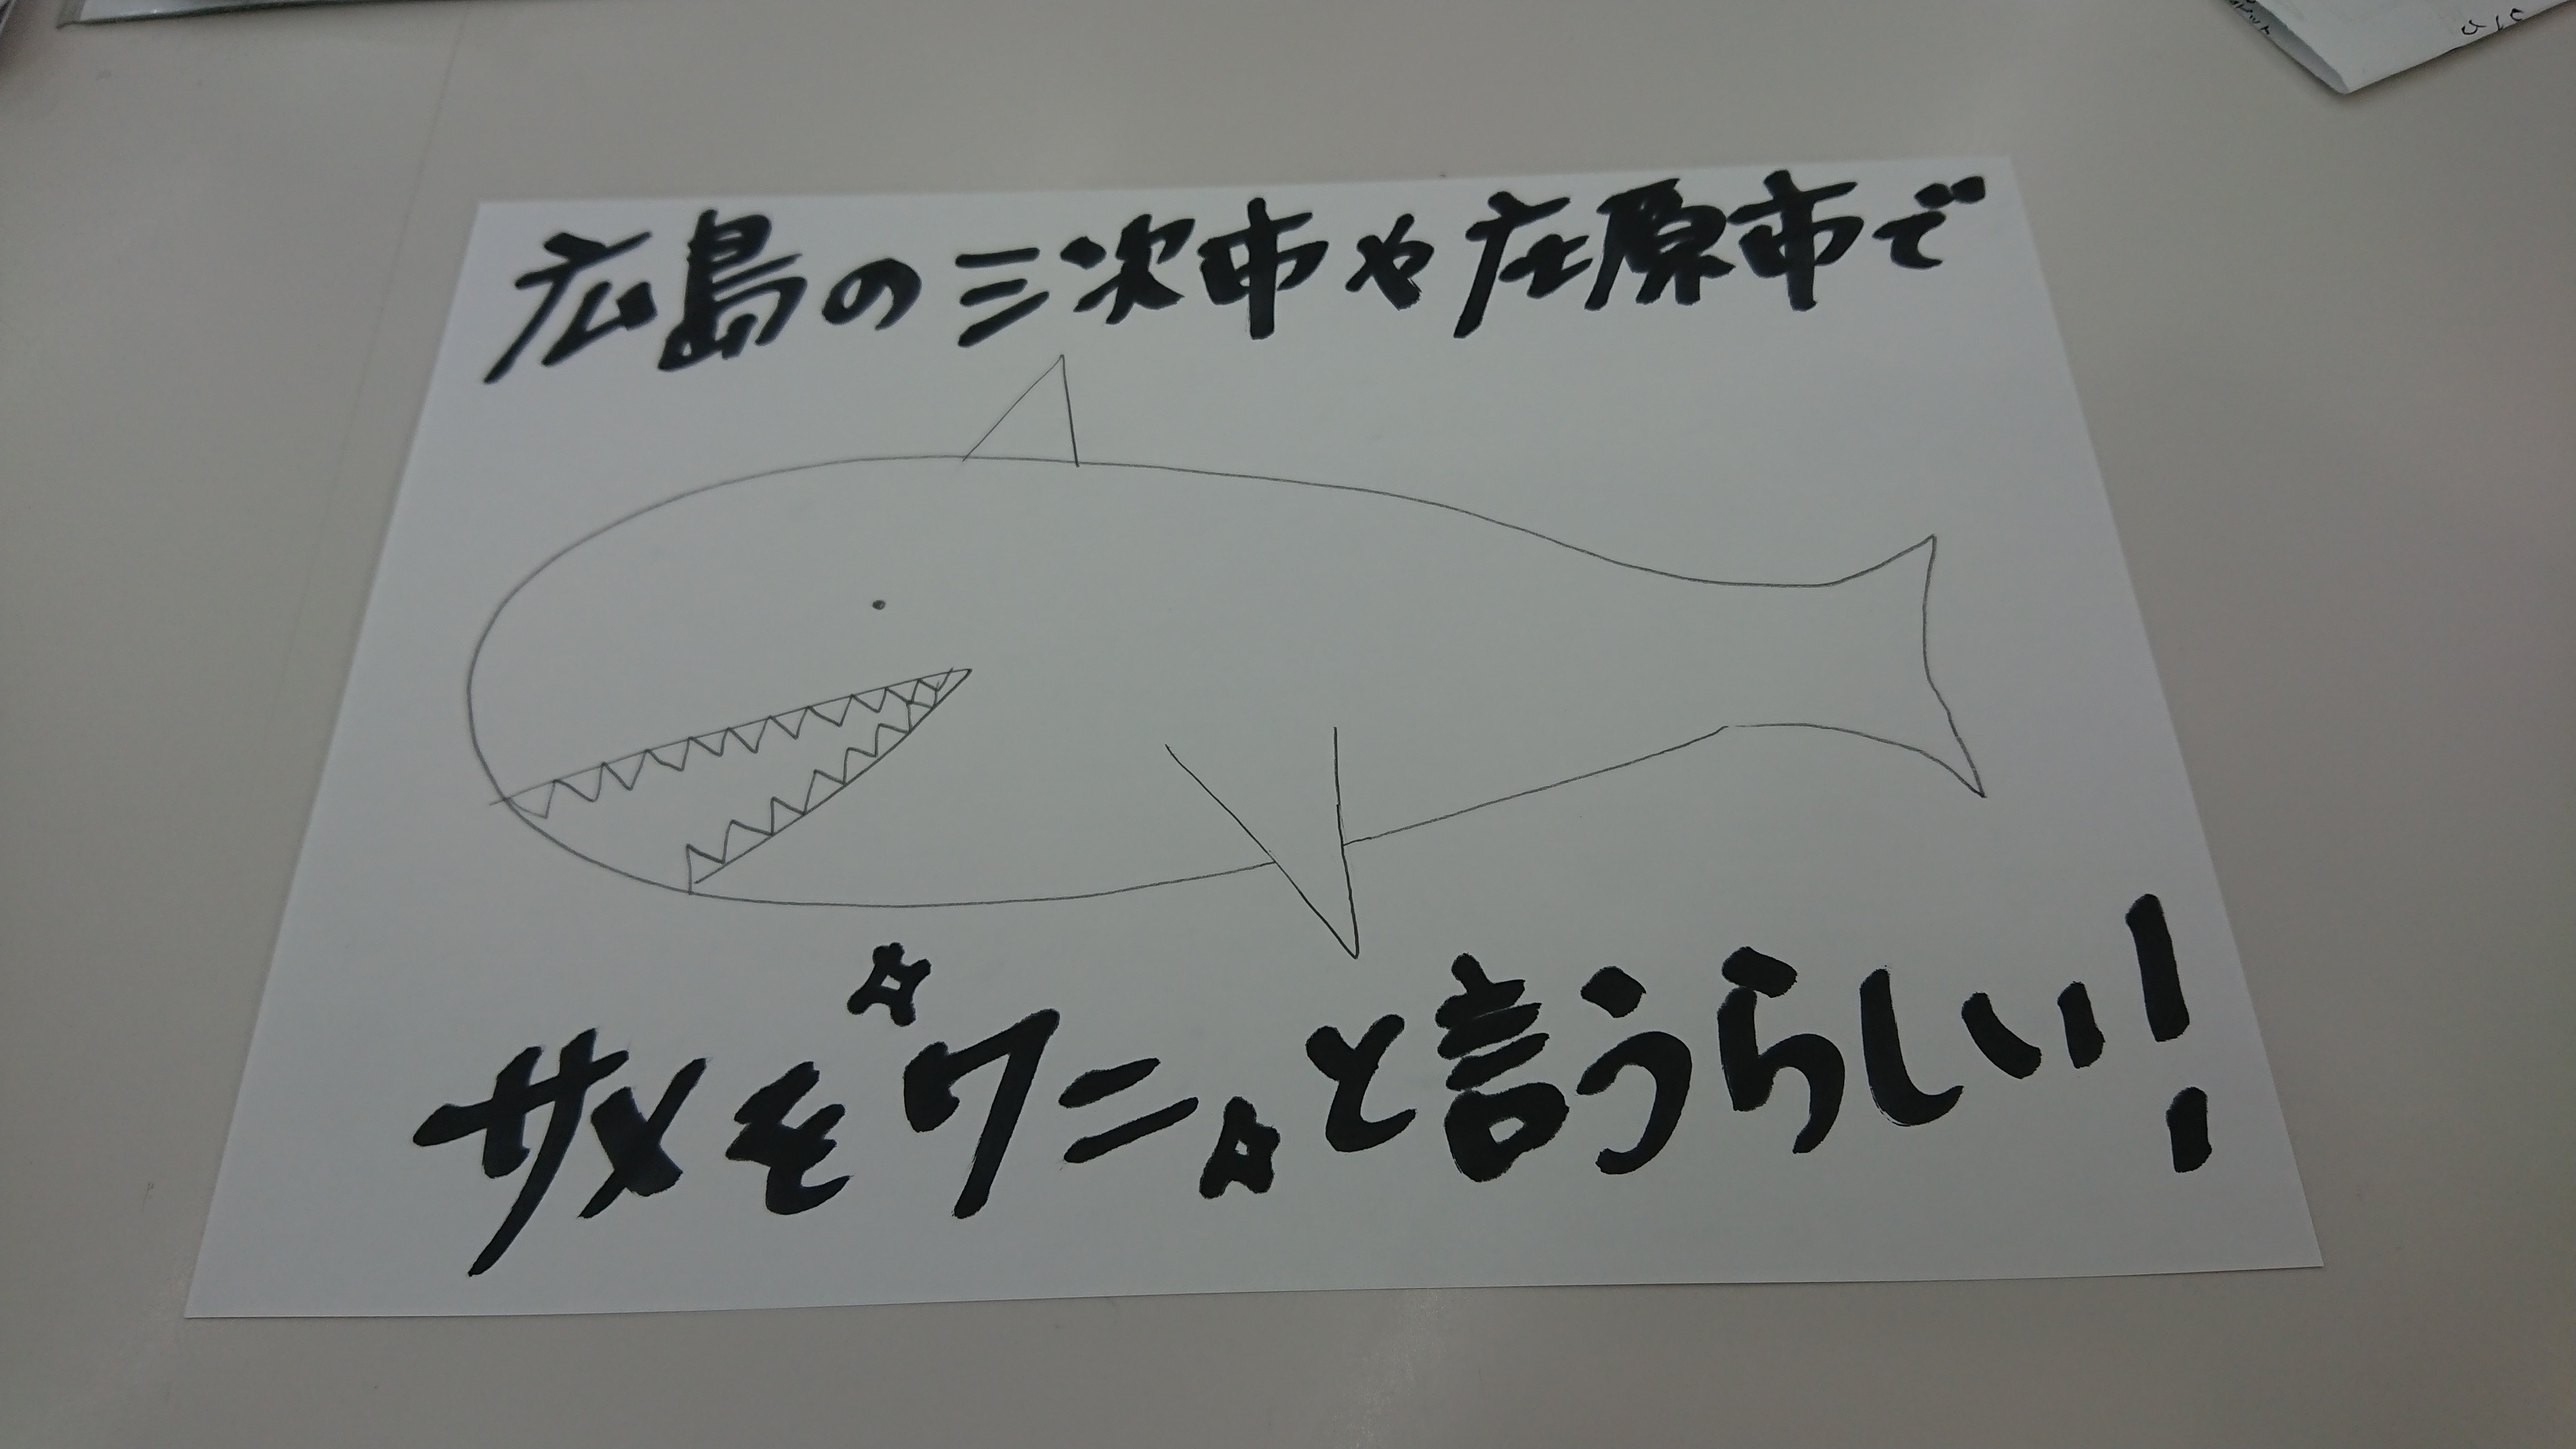 広島の三次市や庄原市で
サメを"ワニ"と言うらしい!